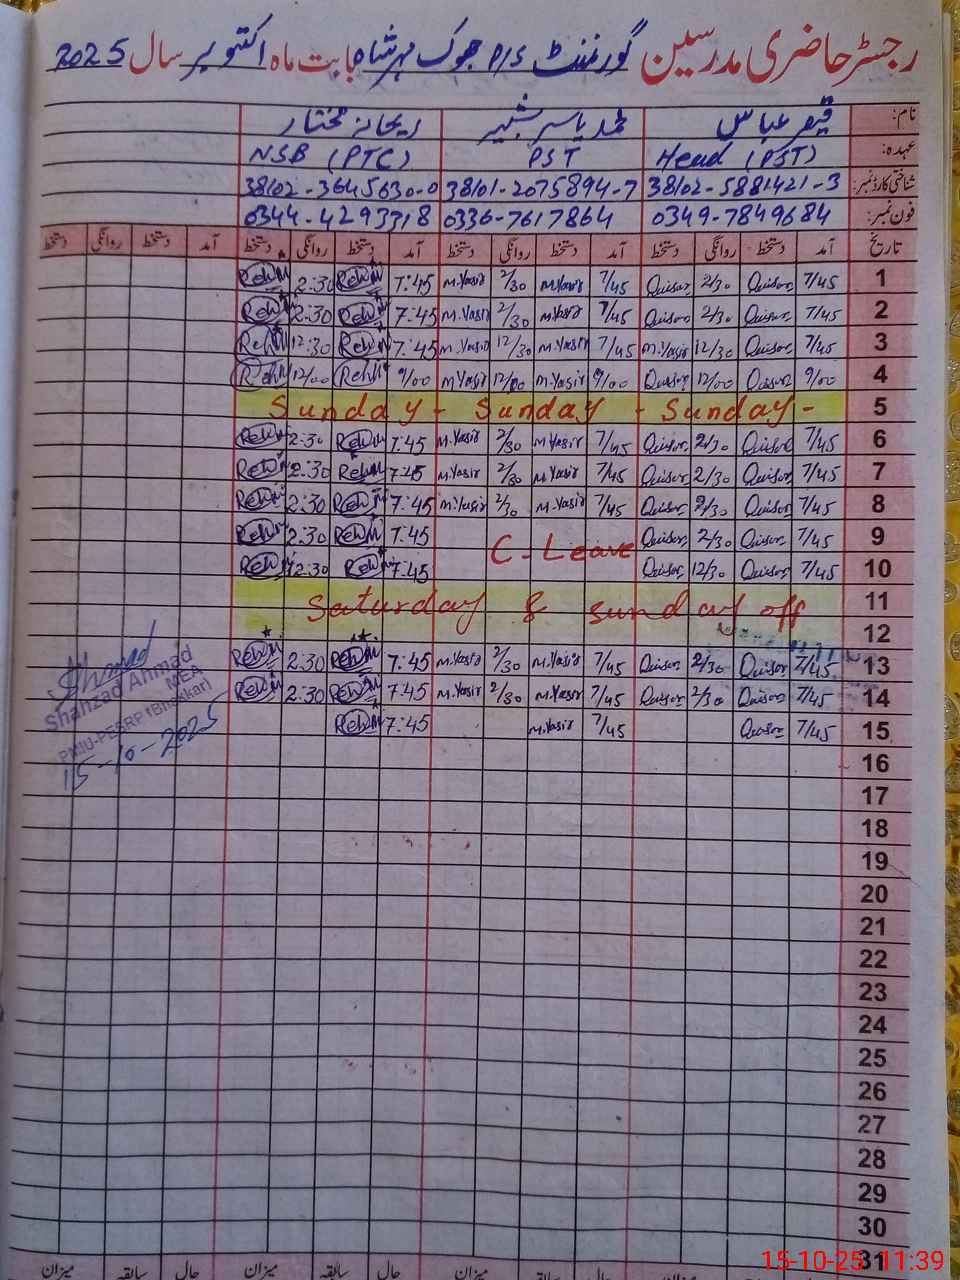 رجسٹر حاضری مدرسین گورنمنٹ P/S جھوک مہر شاہ بابت ماہ اکتوبر سال 2025
نام: قیصر عباس محمد یاسر شبیر ریحانہ مختار
عہدہ: Head (PST) PST NSB (PTC)
شناختی کارڈ نمبر: 38102-5881421-3 38101-2075894-7 38102-3645630-0
فون نمبر: 0349-7849684 0336-7617864 0344-4293318
تاریخ آمد دستخط روانگی دستخط آمد دستخط روانگی دستخط آمد دستخط روانگی دستخط آمد دستخط روانگی دستخط
1 7/45 Quisar 2/30 Quisar 7/45 M.Yasir 2/30 M.Yasir 7:45 2:30
2 7/45 Quisar 2/30 Quisar 7/45 M.Yasir 2/30 M.Yasir 7:45 2:30
3 7/45 Quisar 12/30 M.Yasir 7/45 M.Yasir 12/30 M.Yasir 7:45 12:30
4 9/00 Quisar 12/00 Quisar 9/00 M.Yasir 12/00 M.Yasir 9/00 12/00
5 Sunday - Sunday - Sunday -
6 7/45 Quisar 2/30 Quisar 7/45 M.Yasir 2/30 M.Yasir 7:45 2:30
7 7/45 Quisar 2/30 Quisar 7/45 M.Yasir 2/30 M.Yasir 7:45 2:30
8 7/45 Quisar 2/30 Quisar 7/45 M.Yasir 2/30 M.Yasir 7:45 2:30
9 7/45 Quisar 2/30 Quisar C-Leave 7:45 2:30
10 7/45 Quisar 12/30 Quisar 7:45 12:30
11 Saturday & sunday off
12
13 7/45 Quisar 2/30 Quisar 7/45 M.Yasir 2/30 M.Yasir 7:45 2:30
14 7/45 Quisar 2/30 Quisar 7/45 M.Yasir 2/30 M.Yasir 7:45 2:30
15 7/45 Quisar 7/45 M.Yasir 7:45
Shahzad Ahmad
MEA
PMIU-PESRP (Bhakkar)
15-10-2025
16
17
18
19
20
21
22
23
24
25
26
27
28
29
30
31
میزان سابقہ حال میزان سابقہ حال میزان سابقہ حال میزان
15-10-25 11:39